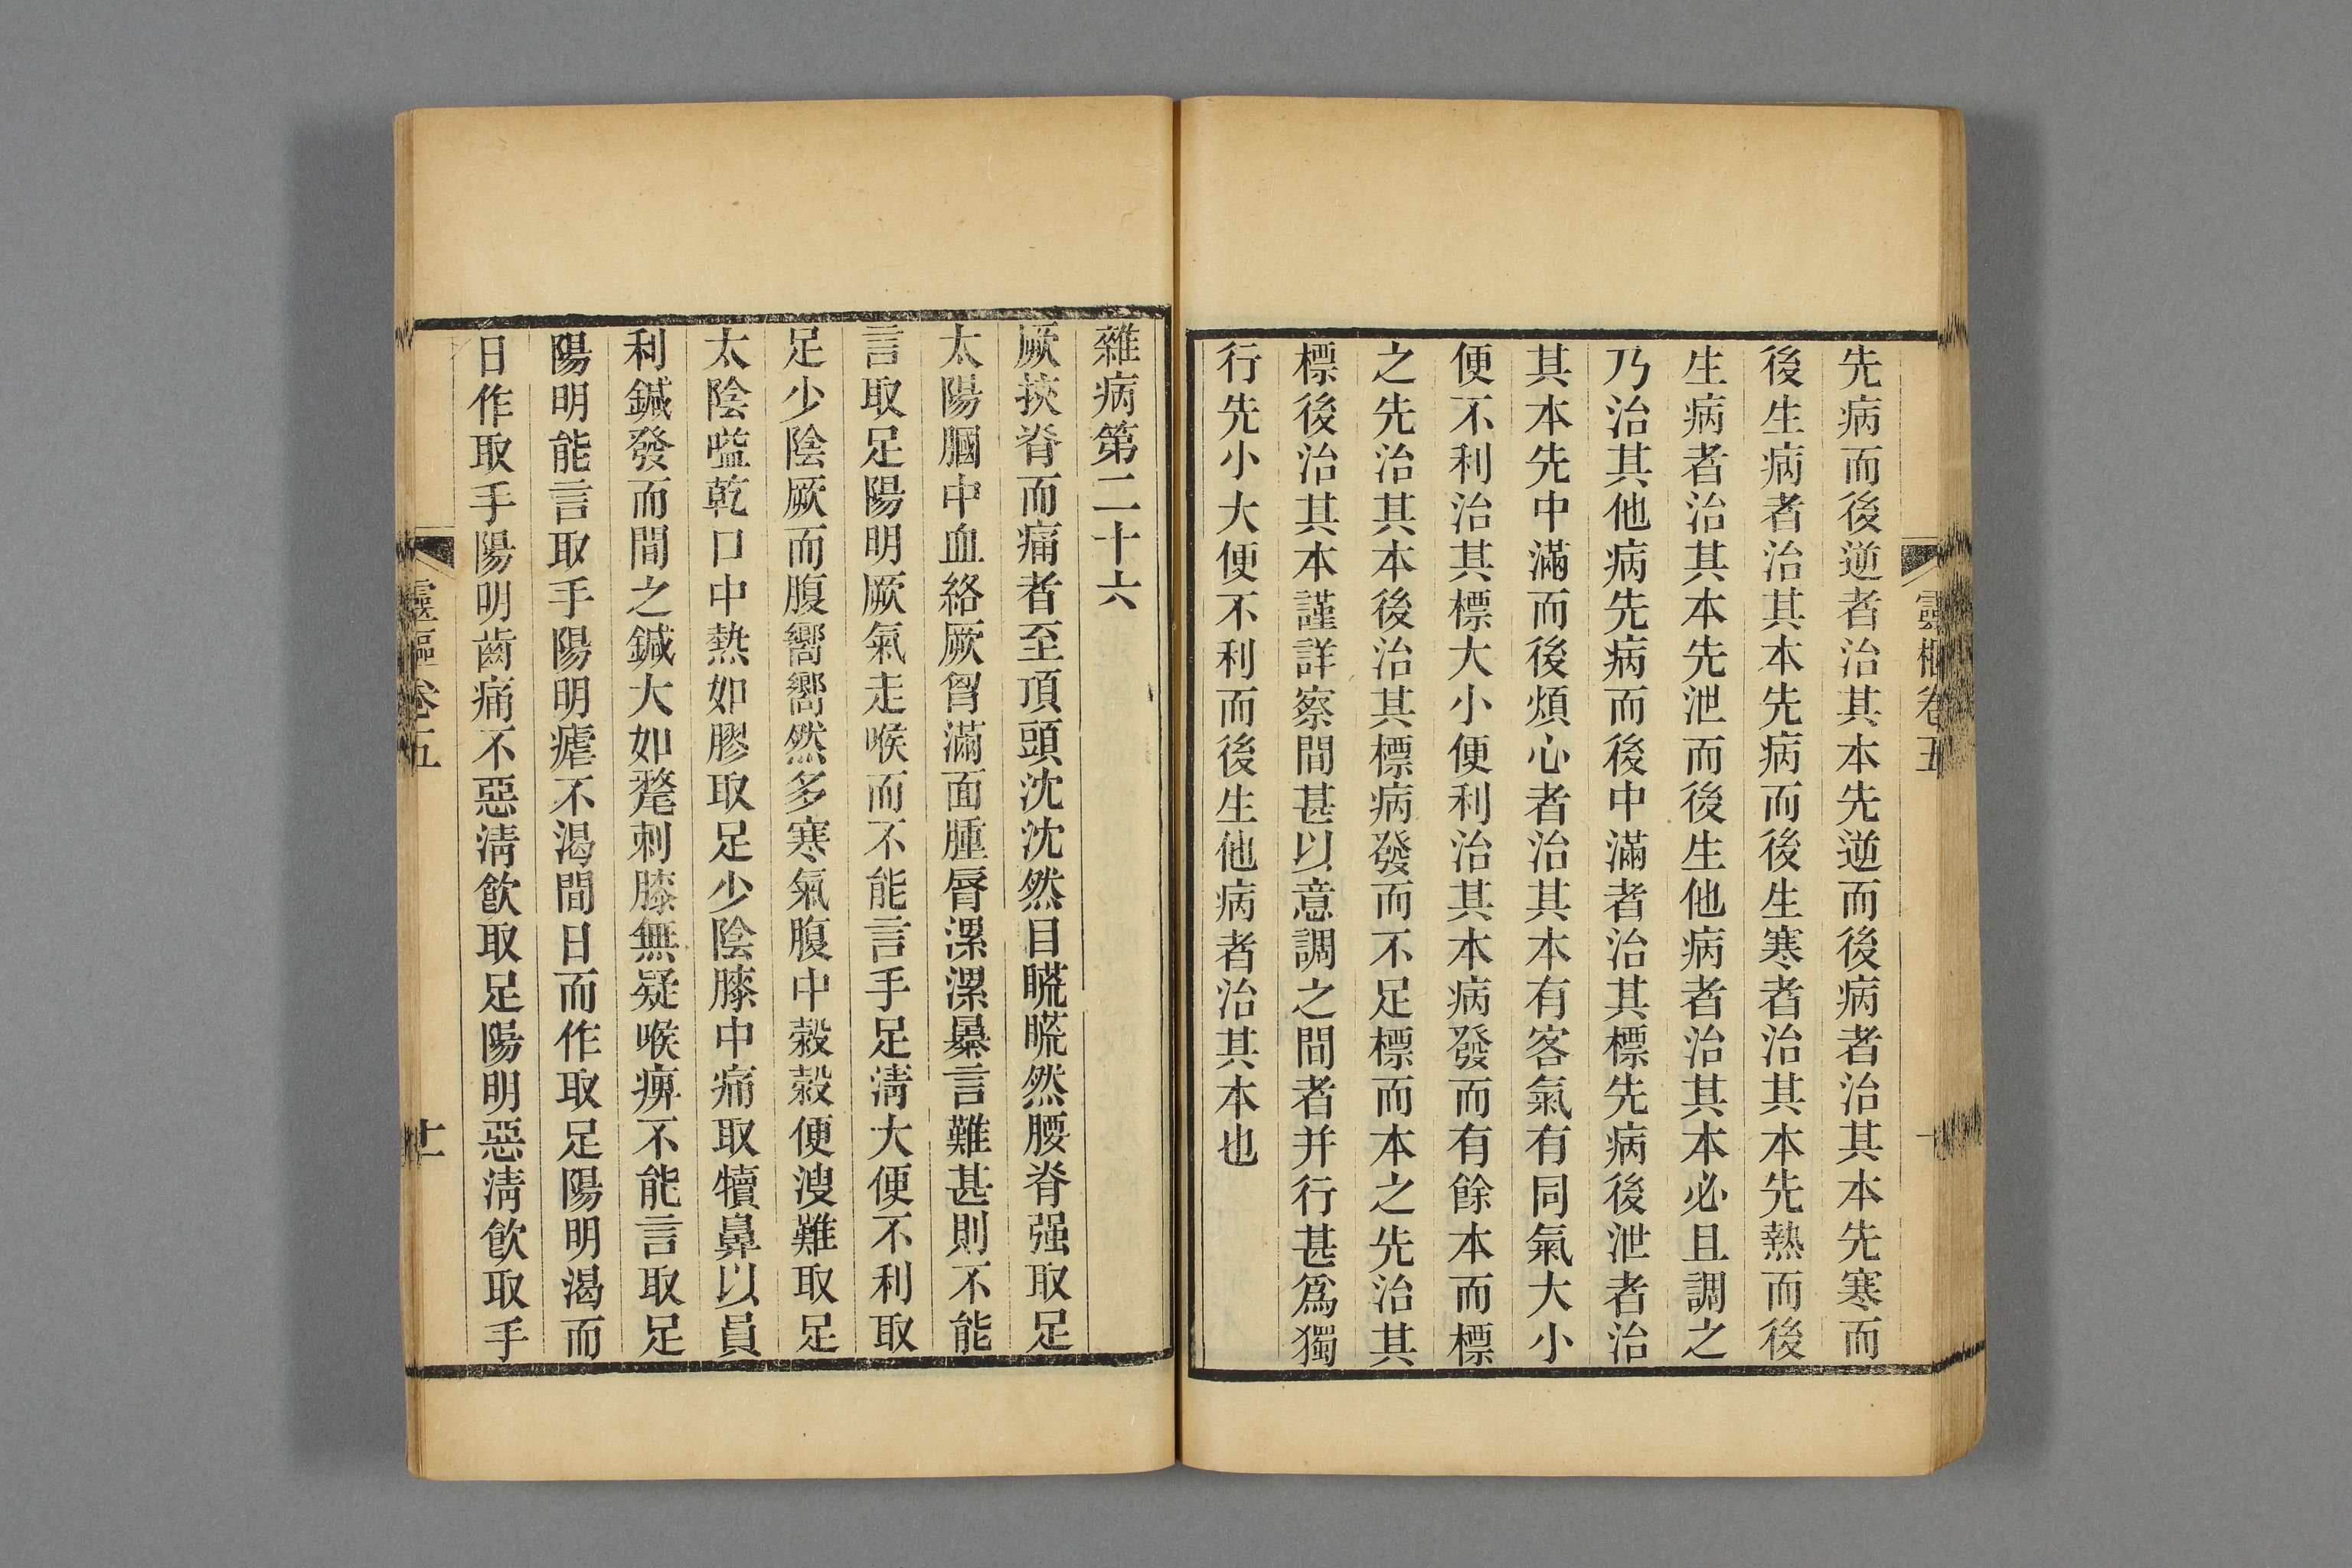 靈樞卷五
先病而後逆者治其本先逆而後病者治其本先寒而
後生病者治其本先病而後生寒者治其本先熱而後
生病者治其本先泄而後生他病者治其本必且調之
乃治其他病先病而後中滿者治其標先病後泄者治
其本先中滿而後煩心者治其本有客氣有同氣大小
便不利治其標大小便利治其本病發而有餘本而標
之先治其本後治其標病發而不足標而本之先治其
標後治其本謹詳察間甚以意調之間者并行甚爲獨
行先小大便不利而後生他病者治其本也
雜病第二十六
厥挾脊而痛者至頂頭沈沈然目䀮䀮然腰脊强取足
太陽膕中血絡厥胷滿面腫脣漯漯暴言難甚則不能
言取足陽明厥氣走喉而不能言手足淸大便不利取
足少陰厥而腹嚮嚮然多寒氣腹中榖榖便溲難取足
太陰嗌乾口中熱如膠取足少陰膝中痛取犢鼻以員
利鍼發而間之鍼大如氂刺膝無疑喉痹不能言取足
陽明能言取手陽明瘧不渴間日而作取足陽明渴而
日作取手陽明齒痛不惡淸飮取足陽明惡淸飮取手
靈樞卷五
十一